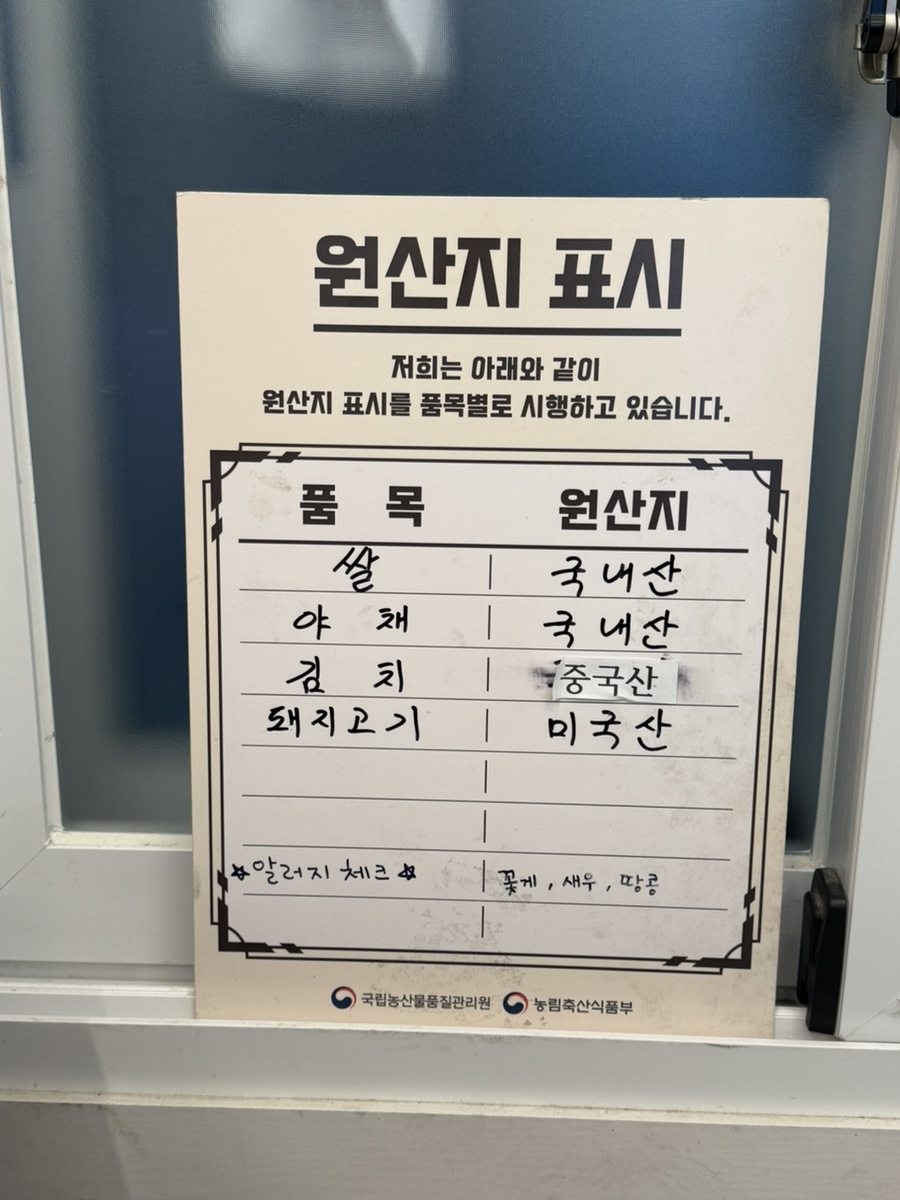 원산지 표시
저희는 아래와 같이
원산지 표시를 품목별로 시행하고 있습니다.
품 목 원산지
쌀 국내산
야 채 국내산
김 치 중국산
돼지고기 미국산
☆알러지 체크☆ 꽃게, 새우, 땅콩
국립농산물품질관리원 농림축산식품부